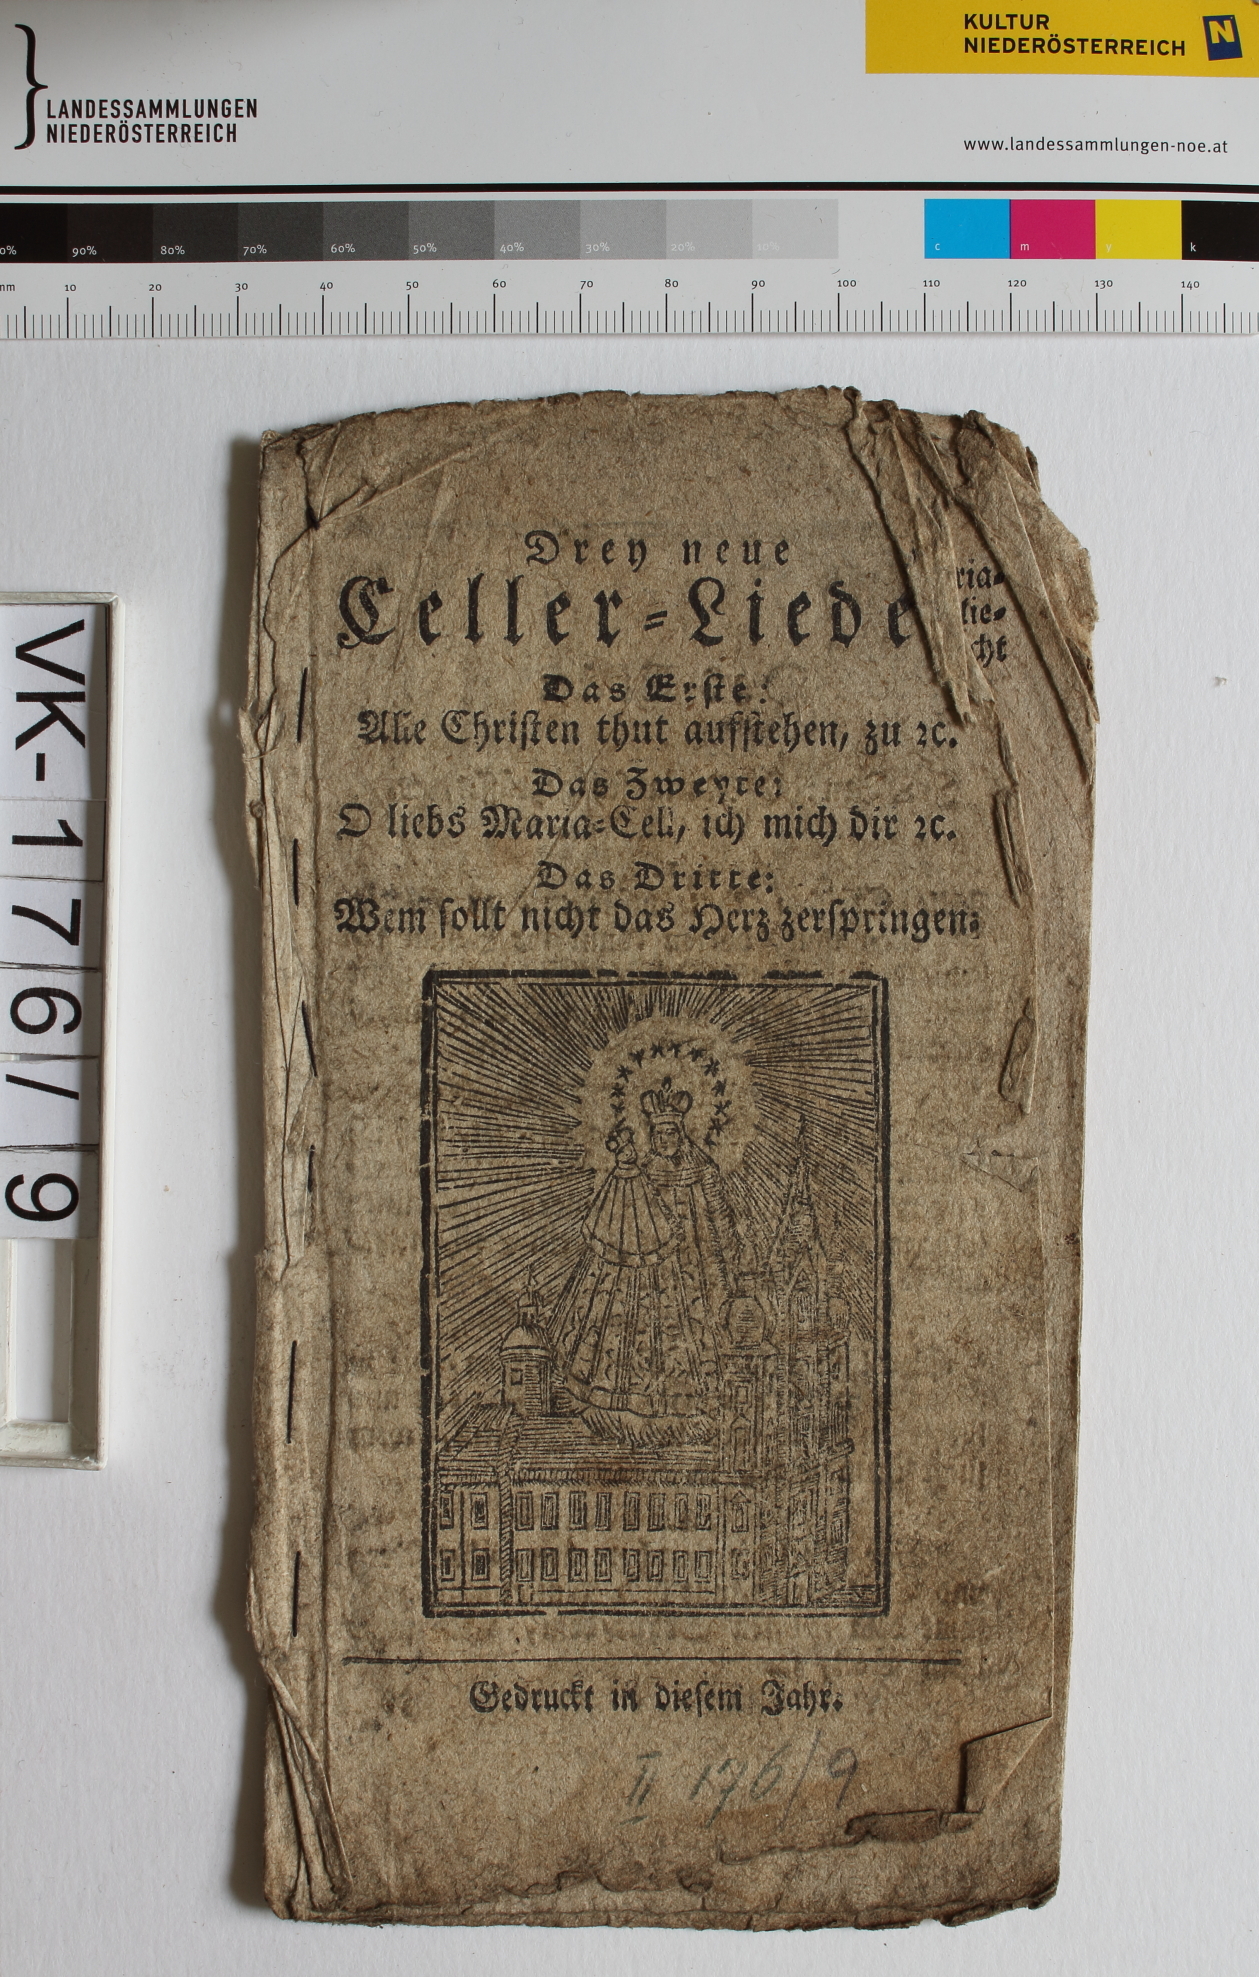 KULTUR
NIEDERÖSTERREICH
N
LANDESSAMMLUNGEN
NIEDERÖSTERREICH
www.landessammlungen-noe.at
0% 90% 80% 70% 60% 50% 40% 30% 20% 10% c m y k
mm 10 20 30 40 50 60 70 80 90 100 110 120 130 140
VK-176/9
Drey neue
Celler-Liede
ria-
lie-
cht
Das Erste:
Alle Christen thut aufstehen, zu ꝛc.
Das Zweyte:
O liebs Maria-Cell, ich mich dir ꝛc.
Das Dritte:
Wem sollt nicht das Herz zerspringen.
Gedruckt in diesem Jahr.
II 176/9